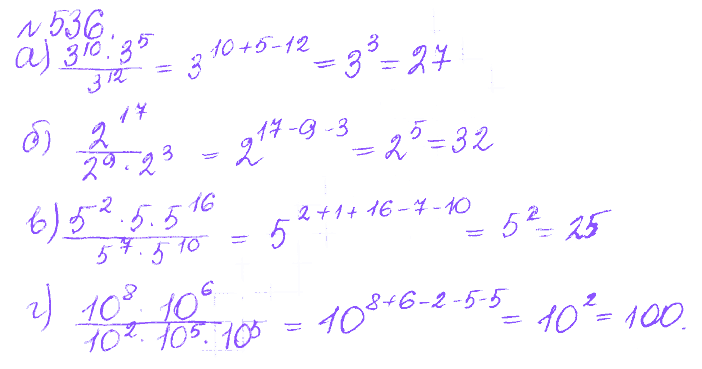 №536.
а) (3^10 · 3^5) / 3^12 = 3^(10+5-12) = 3^3 = 27
б) 2^17 / (2^9 · 2^3) = 2^(17-9-3) = 2^5 = 32
в) (5^2 · 5 · 5^16) / (5^7 · 5^10) = 5^(2+1+16-7-10) = 5^2 = 25
г) (10^8 · 10^6) / (10^2 · 10^5 · 10^5) = 10^(8+6-2-5-5) = 10^2 = 100.